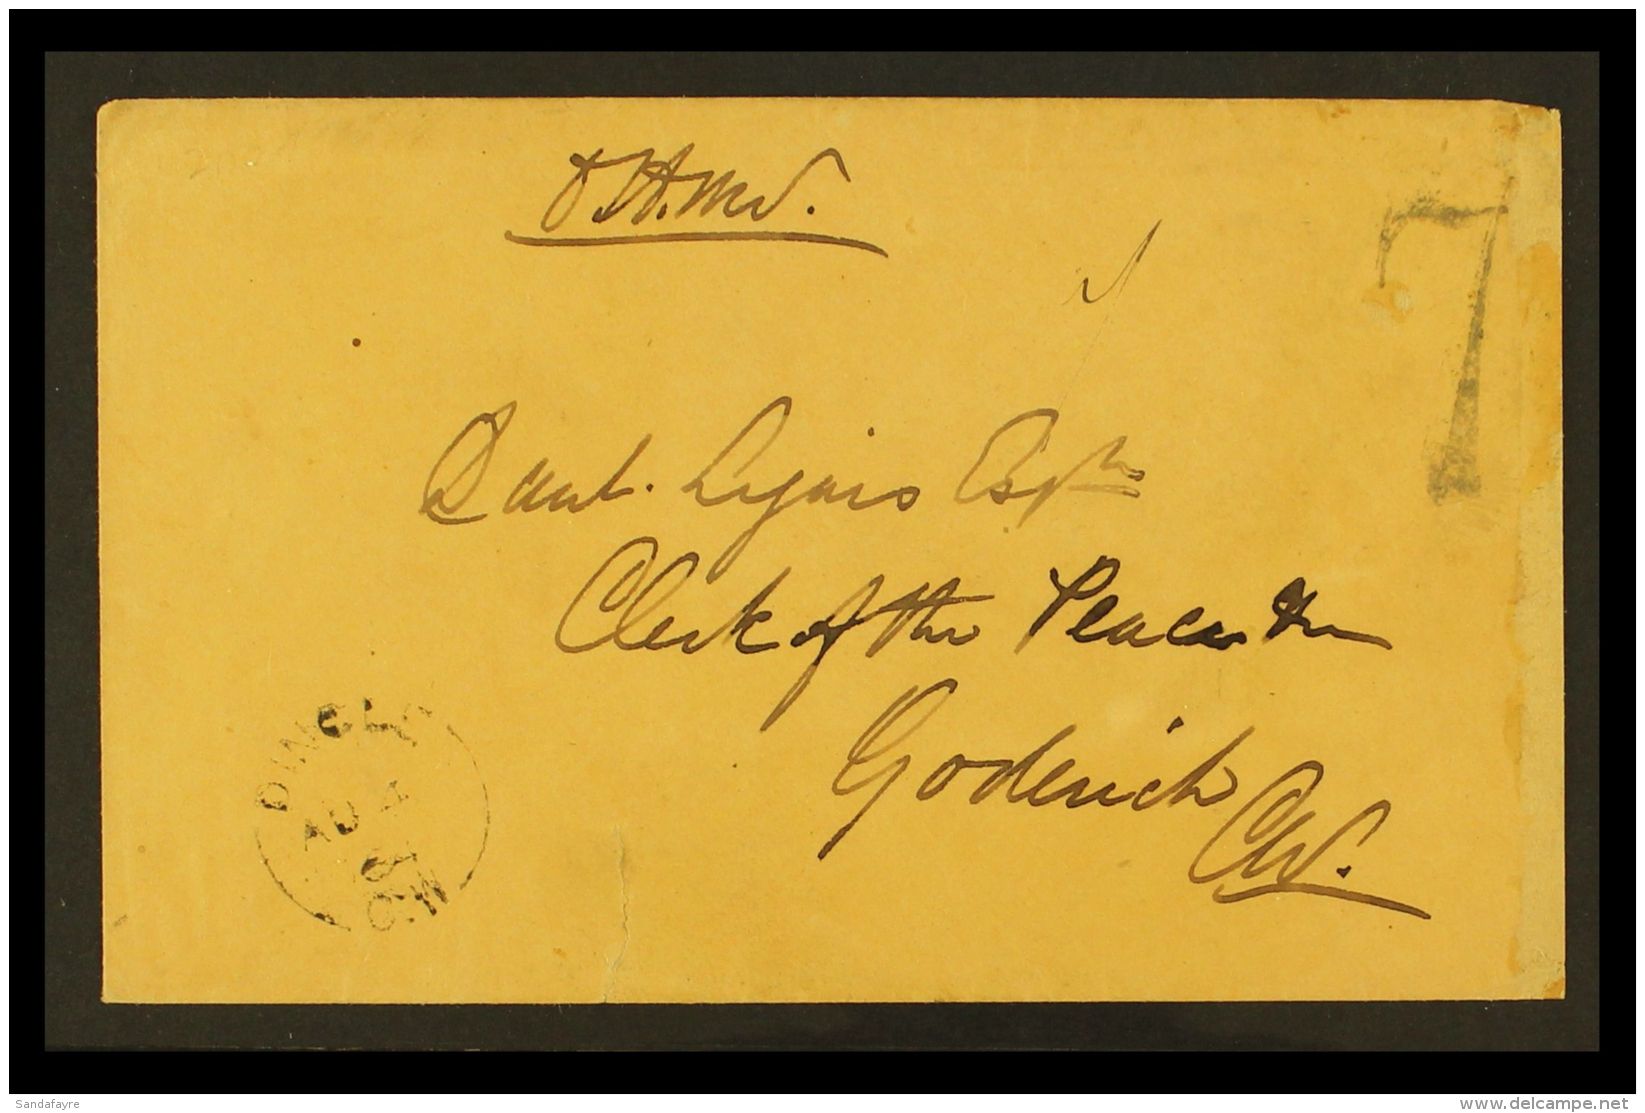 O.H.M.S.
7
Danl. Lizars Esqre
Clerk of the Peace &c
Goderich
C.W.
DINGLE
AU 4
C.W
Sandafayre
www.delcampe.net